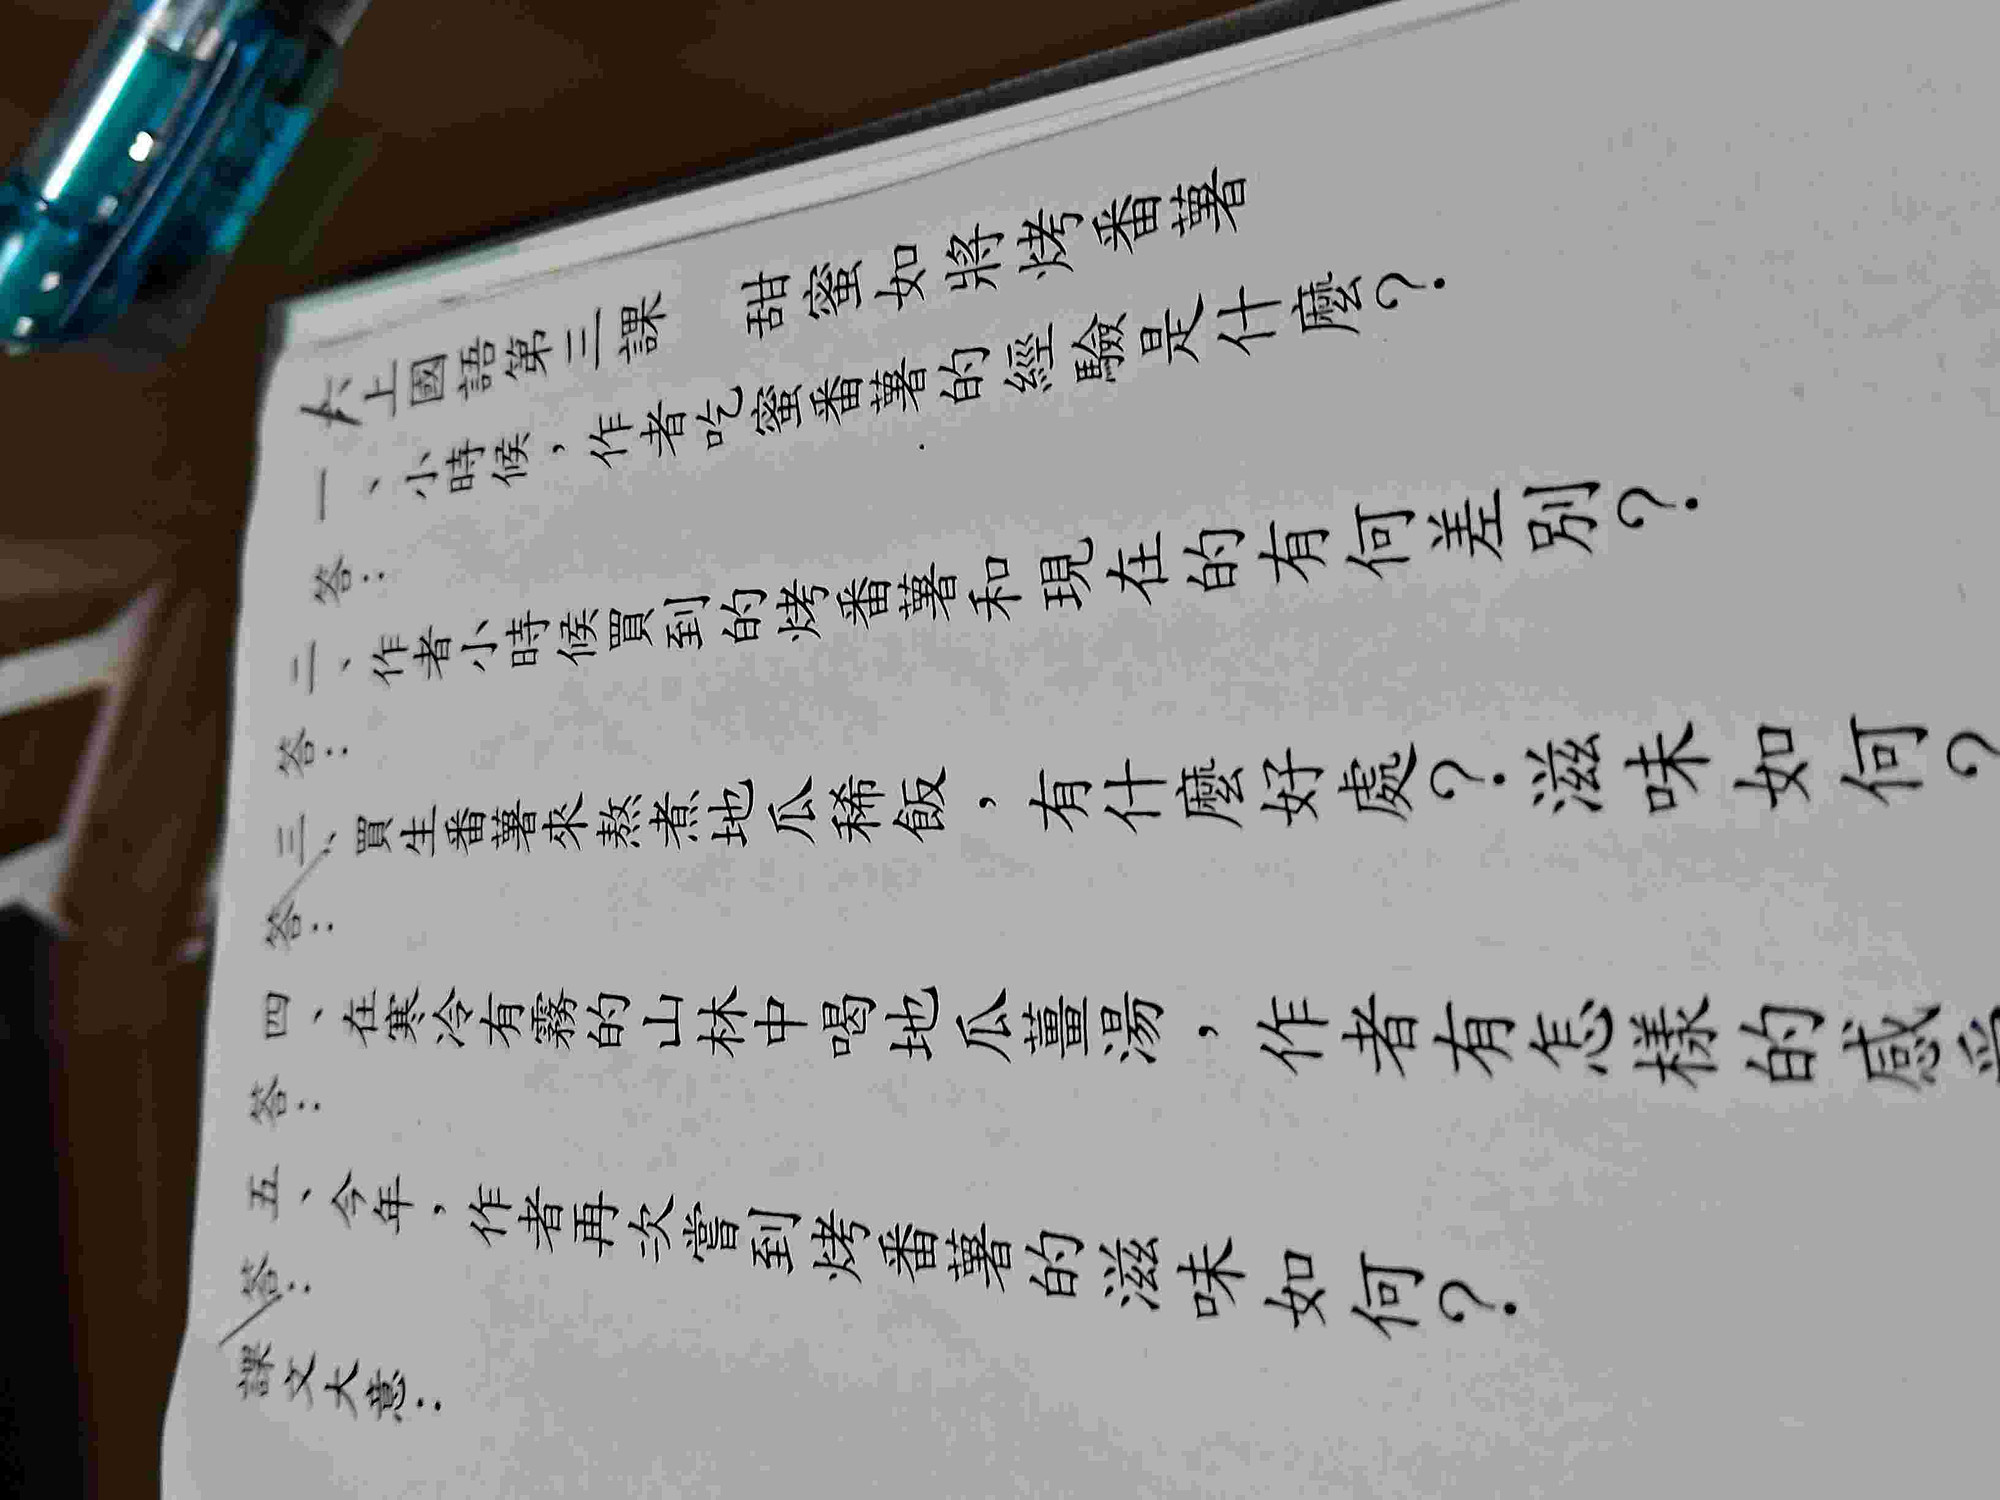 六上國語第三課　甜蜜如漿烤番薯
一、小時候，作者吃蜜番薯的經驗是什麼？
答：
二、作者小時候買到的烤番薯和現在的有何差別？
答：
三、買生番薯來熬煮地瓜稀飯，有什麼好處？滋味如何？
答：
四、在寒冷有霧的山林中喝地瓜薑湯，作者有怎樣的感受
答：
五、今年，作者再次嘗到烤番薯的滋味如何？
答：
課文大意：